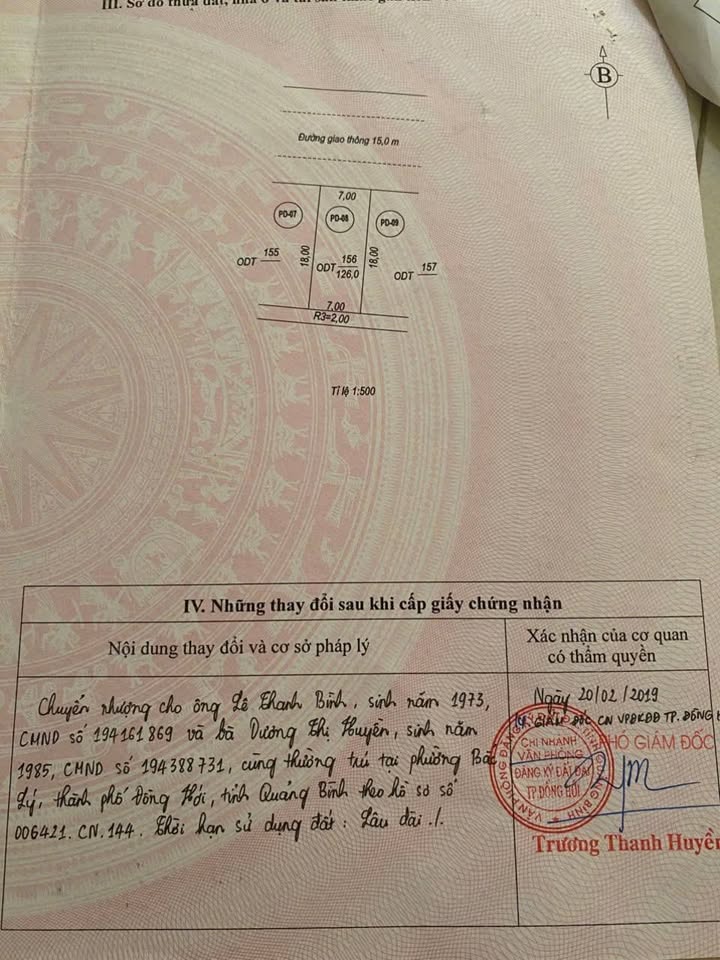 III. Sơ đồ thửa đất, nhà ở và tài sản khác gắn
B
Đường giao thông 15,0 m
7,00
PD-07
PD-08
PD-09
ODT 155
18,00
ODT 156
126,0
18,00
ODT 157
7,00
R3=2,00
Tỉ lệ 1:500
IV. Những thay đổi sau khi cấp giấy chứng nhận
Nội dung thay đổi và cơ sở pháp lý
Xác nhận của cơ quan
có thẩm quyền
Chuyển nhượng cho ông Lê Thanh Bình, sinh năm 1973,
CMND số 194161869 và bà Dương Thị Huyền, sinh năm
1985, CMND số 194388731, cùng thường trú tại phường Bắc
Lý, thành phố Đồng Hới, tỉnh Quảng Bình theo hồ sơ số
006421.CN.144. Thời hạn sử dụng đất: Lâu dài./.
Ngày 20/02/2019
GIÁM ĐỐC CN VPĐKĐĐ TP. ĐỒNG H
PHÓ GIÁM ĐỐC
CHI NHÁNH
VĂN PHÒNG
ĐĂNG KÝ ĐẤT ĐAI
TP ĐỒNG HỚI
Trương Thanh Huyền